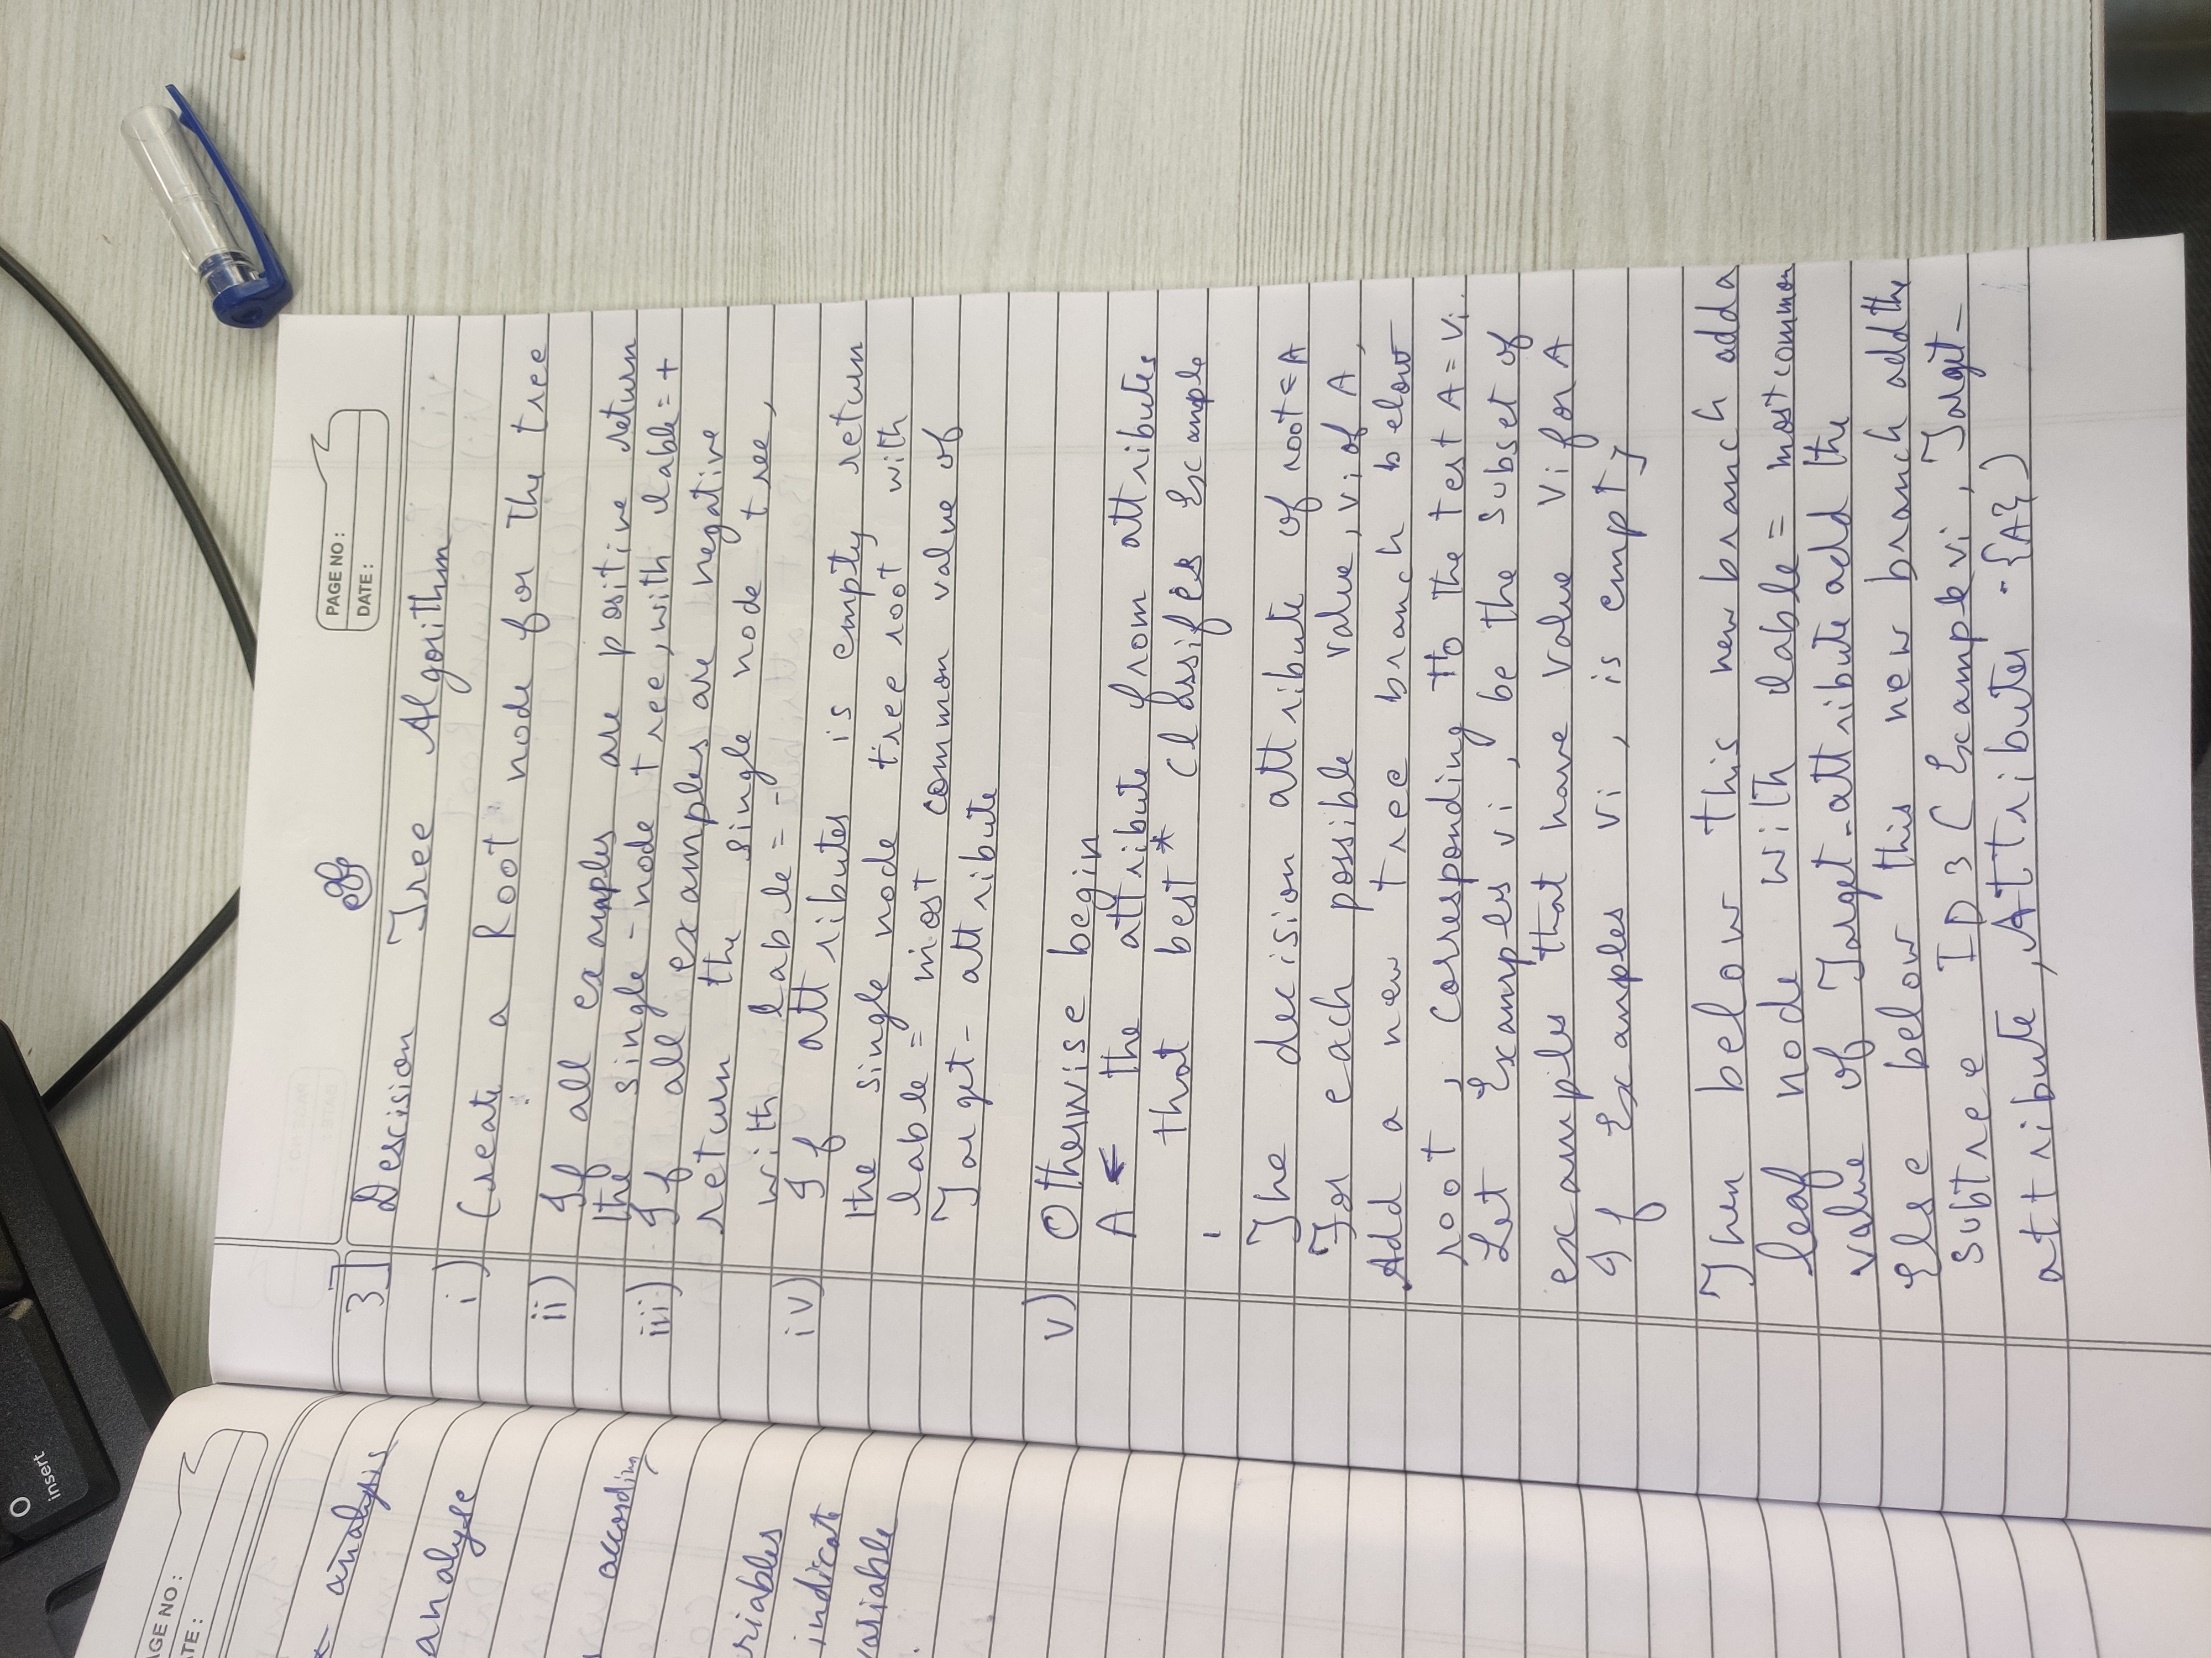 PAGE NO :
DATE :
3] Descision Tree Algorithm
i) Create a Root node for the tree
ii) If all examples are positive return
the single-node tree, with lable = +
iii) If all examples are negative
return the single node tree,
with lable = -
iv) If attributes is empty return
the single node tree root with
lable = most common value of
Target-attribute
v) Otherwise begin
A ← the attribute from attributes
that best * Classifies Example
The decision attribute of root ← A
For each possible value, vi of A,
Add a new tree branch below
root, corresponding to the test A = vi.
Let Examples vi, be the subset of
examples that have value vi for A
If Examples vi, is empty
Then below this new branch add a
leaf node with lable = most common
value of Target-attribute add the
Else below this new branch add the
subtree ID3 ( Example vi, Target-
attribute, Attributes - {A})
insert
AGE NO :
TE :
analysis
analyse
according
riables
indicate
variable